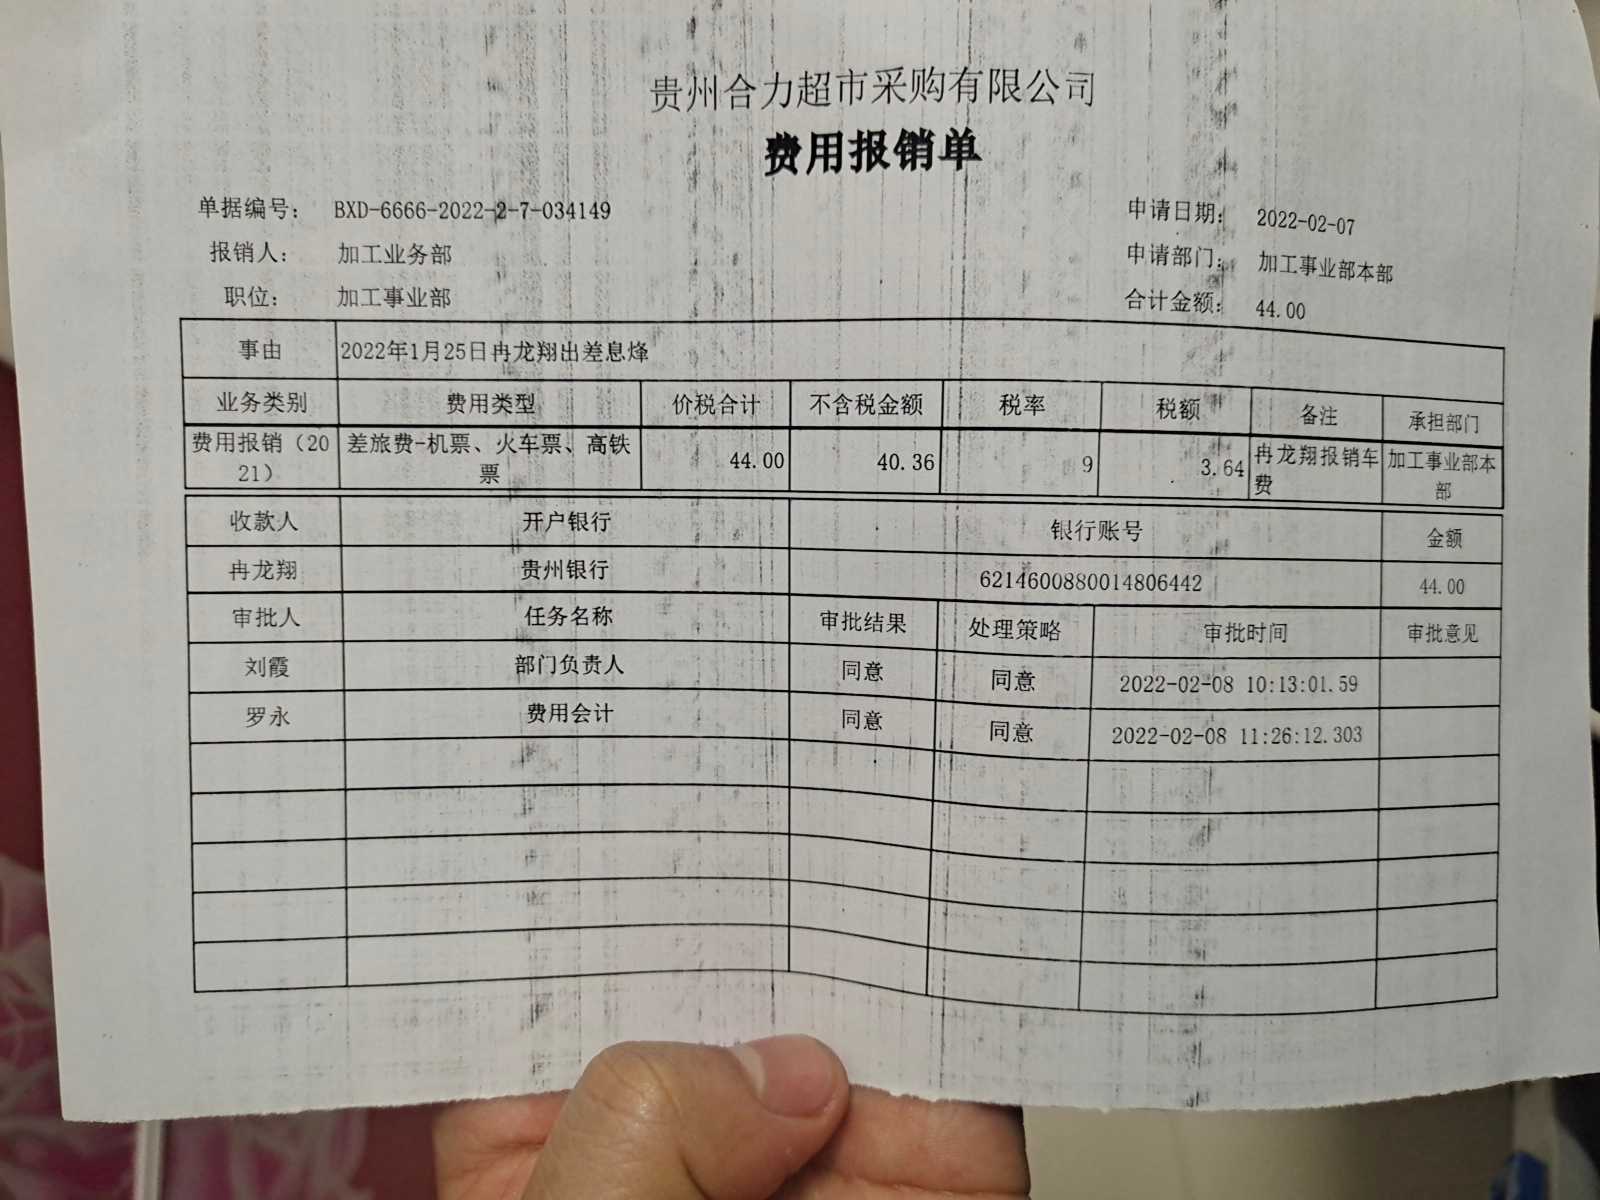 贵州合力超市采购有限公司
费用报销单
单据编号： BXD-6666-2022-2-7-034149 申请日期： 2022-02-07
报销人： 加工业务部 申请部门： 加工事业部本部
职位： 加工事业部 合计金额： 44.00
事由 2022年1月25日冉龙翔出差息烽
业务类别 费用类型 价税合计 不含税金额 税率 税额 备注 承担部门
费用报销（20 差旅费-机票、火车票、高铁 44.00 40.36 9 3.64 冉龙翔报销车 加工事业部本
21） 票 费 部
收款人 开户银行 银行账号 金额
冉龙翔 贵州银行 6214600880014806442 44.00
审批人 任务名称 审批结果 处理策略 审批时间 审批意见
刘霞 部门负责人 同意 同意 2022-02-08 10:13:01.59
罗永 费用会计 同意 同意 2022-02-08 11:26:12.303